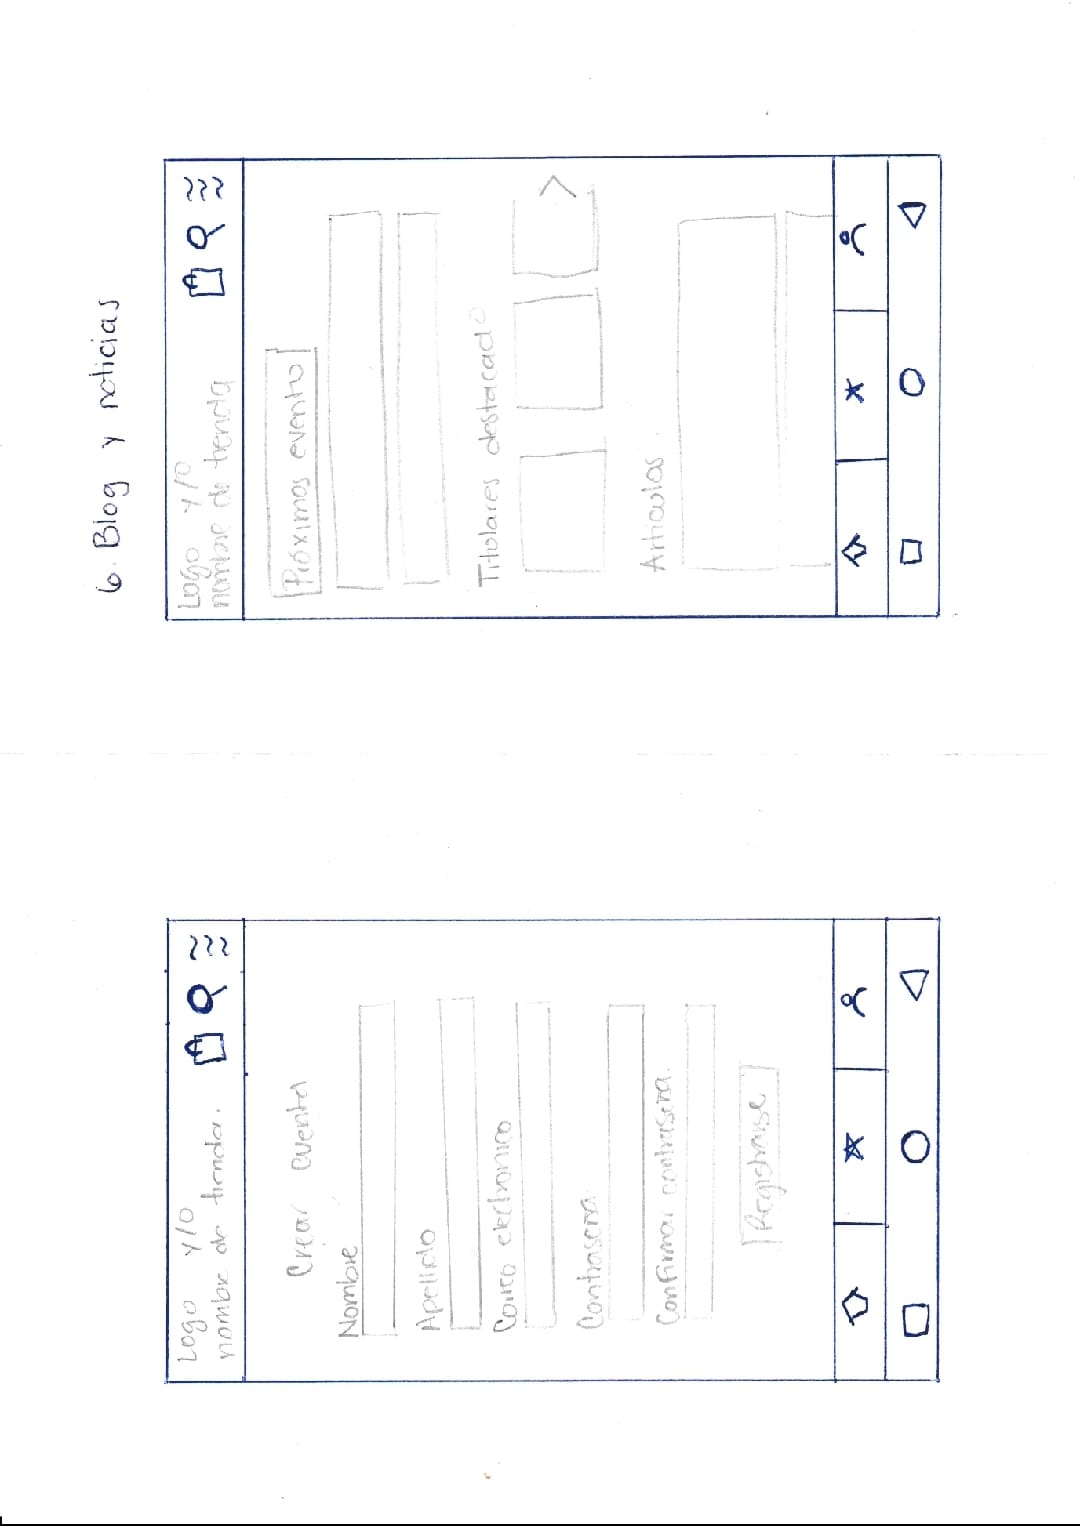 Logo y/o
nombre de tienda.
Crear cuenta
Nombre
Apellido
Correo electronico
Contraseña
Confirmar contraseña.
Registrarse
6. Blog y noticias
Logo y/o
nombre de tienda
Próximos evento
Titulares destacado
Articulos